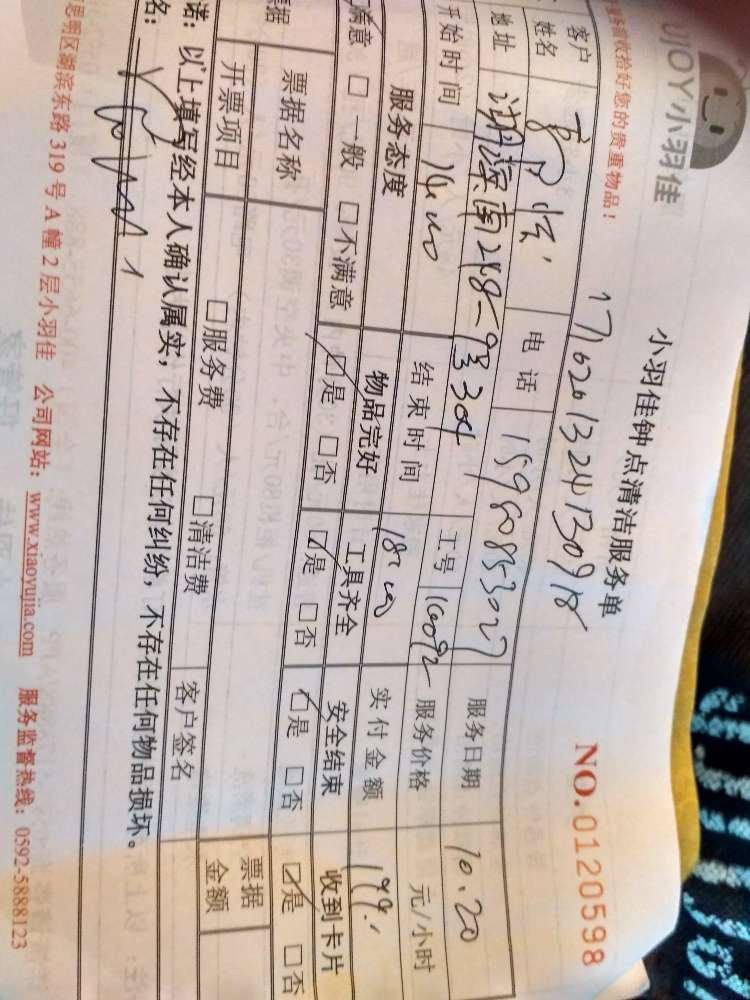 UJOY小羽佳
小羽佳钟点清洁服务单
NO.0120598
收拾好您的贵重物品！
客户
姓名
电话 15960853027
服务日期 10.20
地址 湖滨南248-9号304
工号 16092
服务价格 元/小时
开始时间 14:00 结束时间 18:00 实付金额 199.
服务态度 物品完好 工具齐全 安全结束 收到卡片
满意 □一般 □不满意 ☑是 □否 ☑是 □否 ☑是 □否 ☑是 □否
票据
票据名称
票据
金额
开票项目 □服务费 □清洁费 客户签名
诺：以上填写经本人确认属实，不存在任何纠纷，不存在任何物品损坏。
名：
思明区湖滨东路 319 号 A 幢 2 层小羽佳 公司网站：www.xiaoyujia.com 服务监督热线：0592-5888123